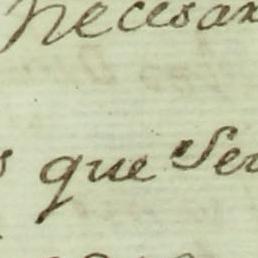 necesar
s que Ser